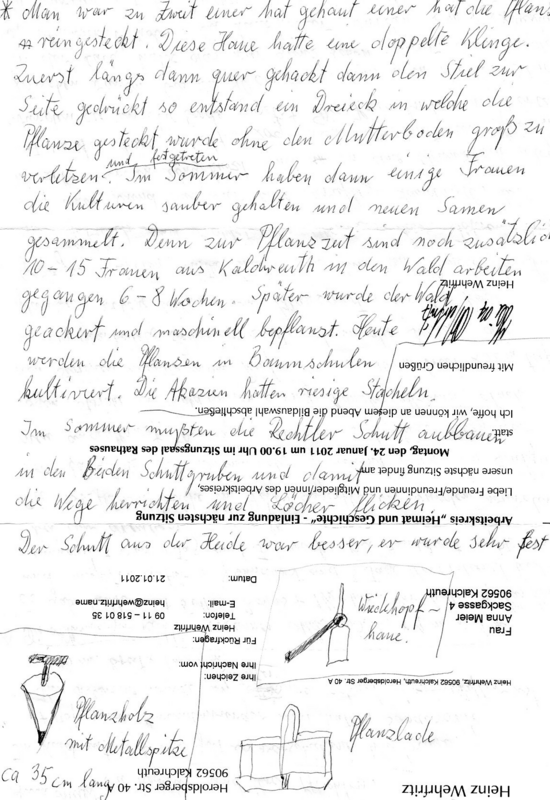 * Man war zu Zweit einer hat gehaut einer hat die Pflanz
reingesteckt. Diese Haue hatte eine doppelte Klinge.
Zuerst längs dann quer gehackt dann den Stiel zur
Seite gedrückt so entstand ein Dreieck in welche die
Pflanze gesteckt wurde ohne den Mutterboden groß zu
und festgetreten
verletzen. Im Sommer haben dann einige Frauen
die Kulturen sauber gehalten und neuen Samen
gesammelt. Denn zur Pflanzzeit sind noch zusätzlich
10-15 Frauen aus Kalchreuth in den Wald arbeiten
gegangen 6-8 Wochen. Später wurde der Wald
geackert und maschinell bepflanzt. Heute
werden die Pflanzen in Baumschulen
kultiviert. Die Akazien hatten riesige Stacheln.
Im Sommer mußten die Rechtler Schutt aufbauen
in den Beiden Schuttgruben und damit
die Wege herrichten und Löcher flicken.
Der Schutt aus der Heide war besser, er wurde sehr fest
Wiedehopf-
haue.
Pflanzholz
mit Metallspitze
ca 35 cm lang
Pflanzlade
Heinz Wehrfritz
Heroldsberger Str. 40 A
90562 Kalchreuth
Heinz Wehrfritz, 90562 Kalchreuth, Heroldsberger Str. 40 A
Frau
Anna Meier
Sackgasse 4
90562 Kalchreuth
Ihre Zeichen:
Ihre Nachricht vom:
Für Rückfragen:
Heinz Wehrfritz
Telefon: 09 11 – 518 01 35
E-mail: heinz@wehrfritz.name
Datum: 21.01.2011
Arbeitskreis „Heimat und Geschichte“ - Einladung zur nächsten Sitzung
Liebe Freunde/Freundinnen und Mitglieder/innen des Arbeitskreises,
unsere nächste Sitzung findet am
Montag, den 24. Januar 2011 um 19.00 Uhr im Sitzungssaal des Rathauses
statt.
Ich hoffe, wir können an diesem Abend die Bildauswahl abschließen.
Mit freundlichen Grüßen
Heinz Wehrfritz